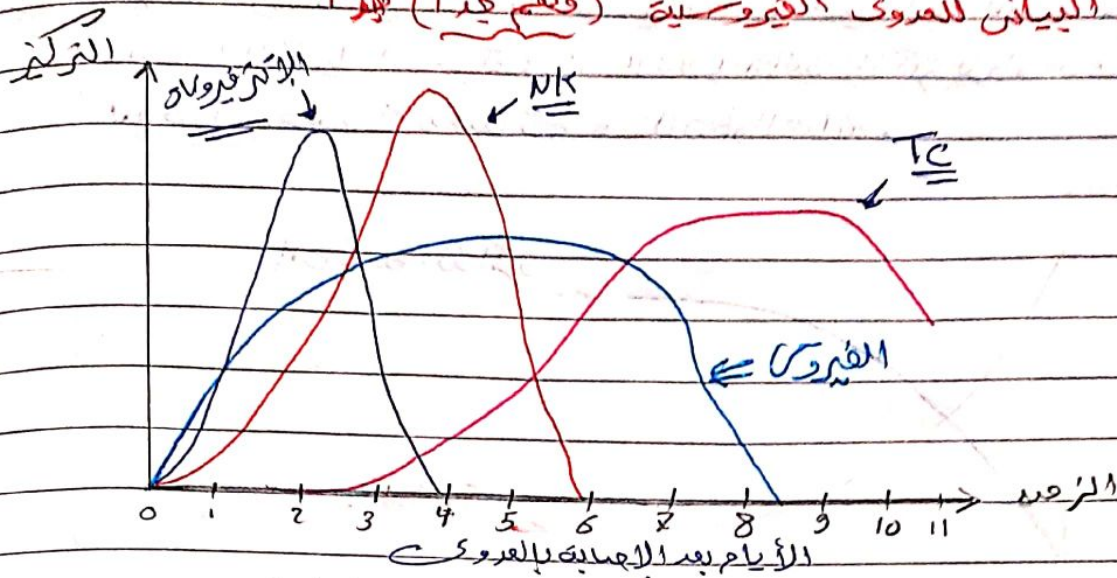 البياني للعدوى الفيروسية (مهم جدا) جدا
التركيز
الإنترفيرونات
NK
TC
الفيروس
الزمن
0 1 2 3 4 5 6 7 8 9 10 11
الأيام بعد الاصابة بالعدوى